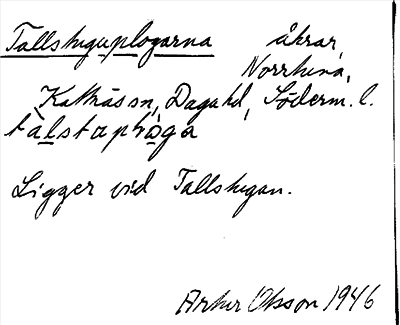 Tallstuguplogarna åkrar,
Norrhina,
Kattnäs sn, Daga hd, Söderm. l.
tàlstaplòga
Ligger vid Tallstugan.
Artur Olsson 1946